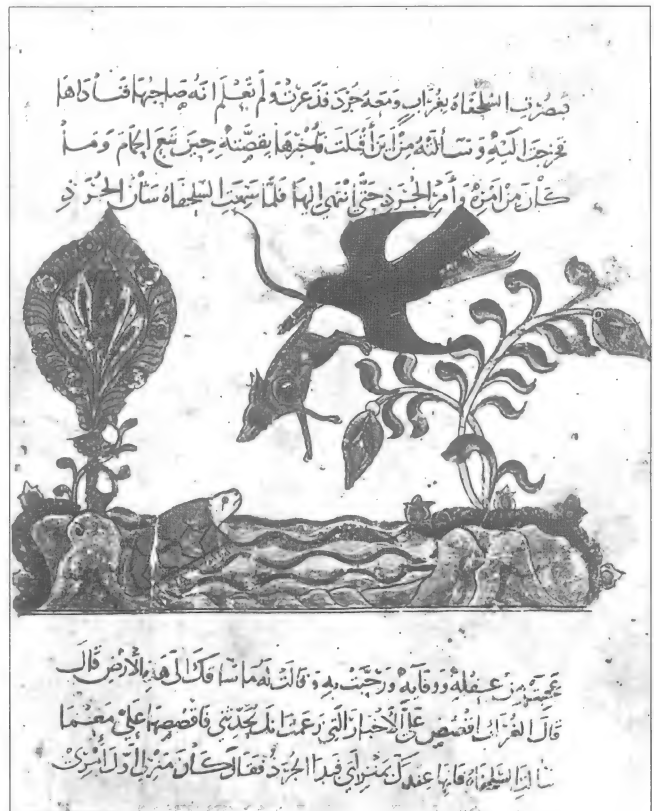 فبصرت السلحفاة بغراب ومعه جرذ فذعرت ولم تعلم انه صاحبها فناداها
فخرجت اليه وسألته من اين أقبلت فأخبرها بقصته حين تبع الحمام وما
كان من امره وأمر الجرذ حتى انتهى إليها فلما سمعت السلحفاة شأن الجرذ
عجبت من عقله ووفايه ورحبت به وقالت له ما ساقك الى هذه الأرض قال
قال الغراب اقصص علي الأخبار التي زعمت انك تحدثني فاقصصها علي مع ما
سالت السلحفاة فانها عندك بمنزلتي فبدا الجرذ فقال كان منزلي اول امري